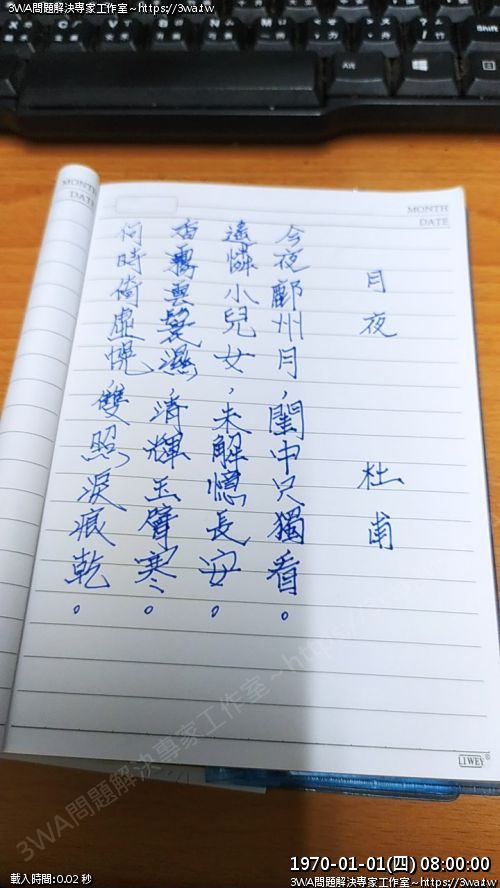 3WA問題解決專家工作室~https://3wa.tw
3WA問題解決專家工作室~https://3wa.tw
Alt
Alt
Shift
MONTH
DATE
MONTH
DATE
月夜 杜甫
今夜鄜州月,閨中只獨看。
遙憐小兒女,未解憶長安。
香霧雲鬟濕,清輝玉臂寒。
何時倚虛幌,雙照淚痕乾。
3WA問題解決專家工作室~https://3wa.tw
LIWEY
1970-01-01(四) 08:00:00
載入時間:0.02 秒
3WA問題解決專家工作室~https://3wa.tw